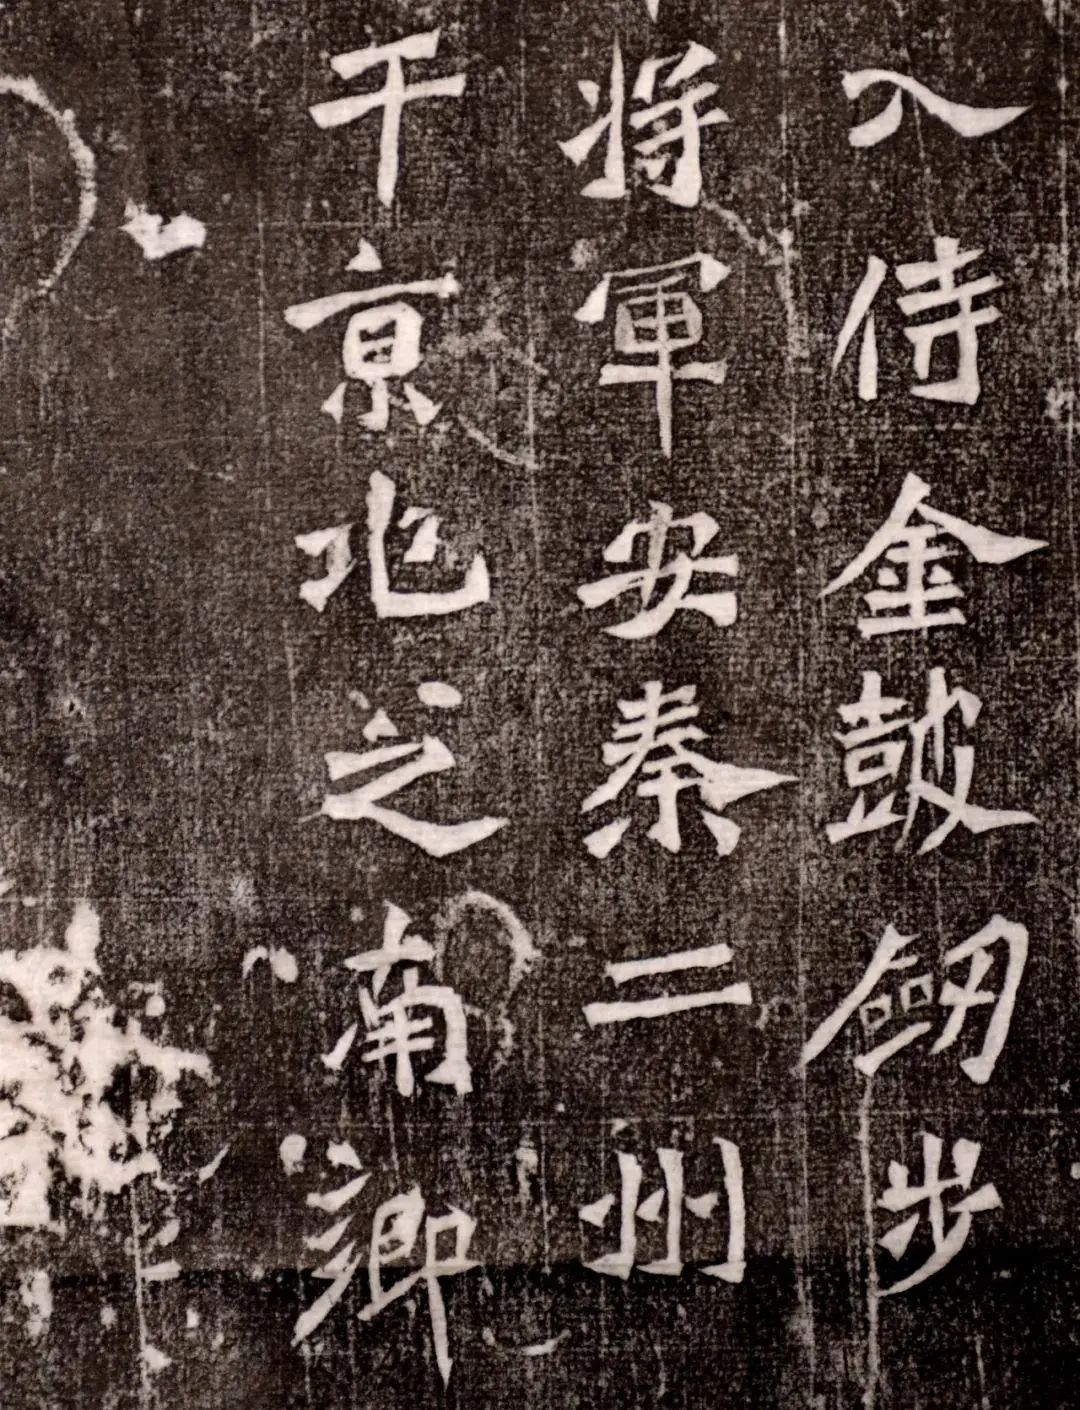 入侍金皷劒步
将軍安秦二州
于京兆之南鄉